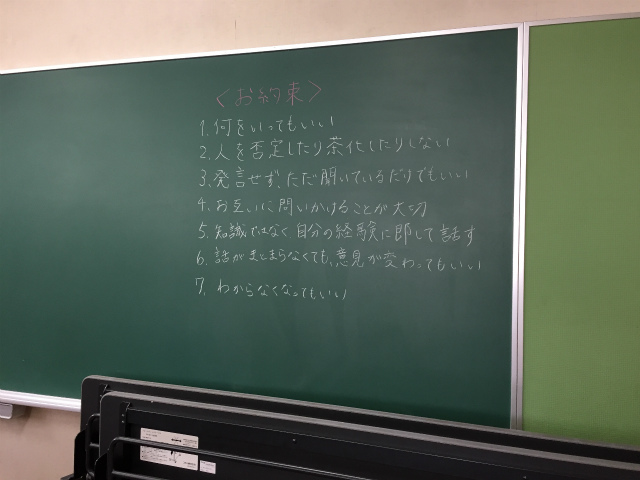 〈お約束〉
1. 何をいってもいい
2. 人を否定したり茶化したりしない
3. 発言せず、ただ聞いているだけでもいい
4. お互いに問いかけることが大切
5. 知識ではなく自分の経験に即して話す
6. 話がまとまらなくても、意見が変わってもいい
7. わからなくなってもいい